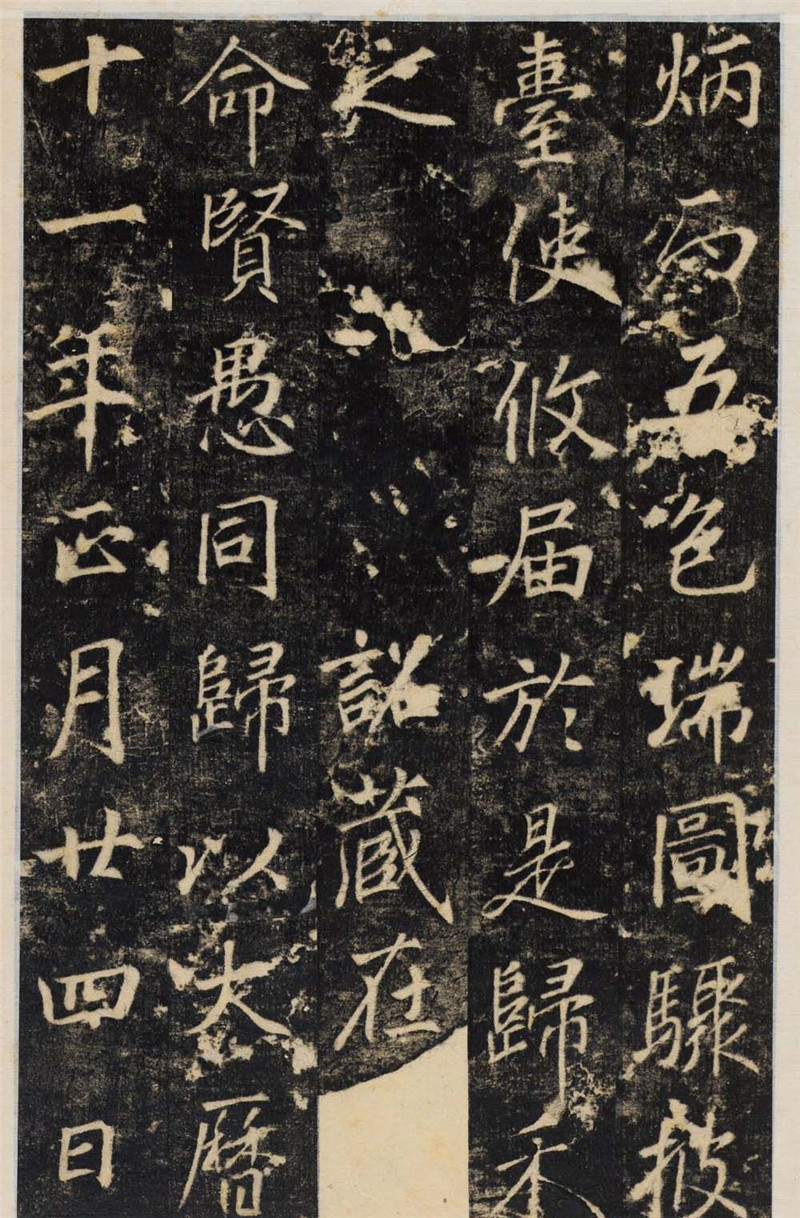 炳而五色瑞圖驟披
臺使攸届於是歸禾
之詔蔵在
命賢愚同歸以大曆
十一年正月廿四日